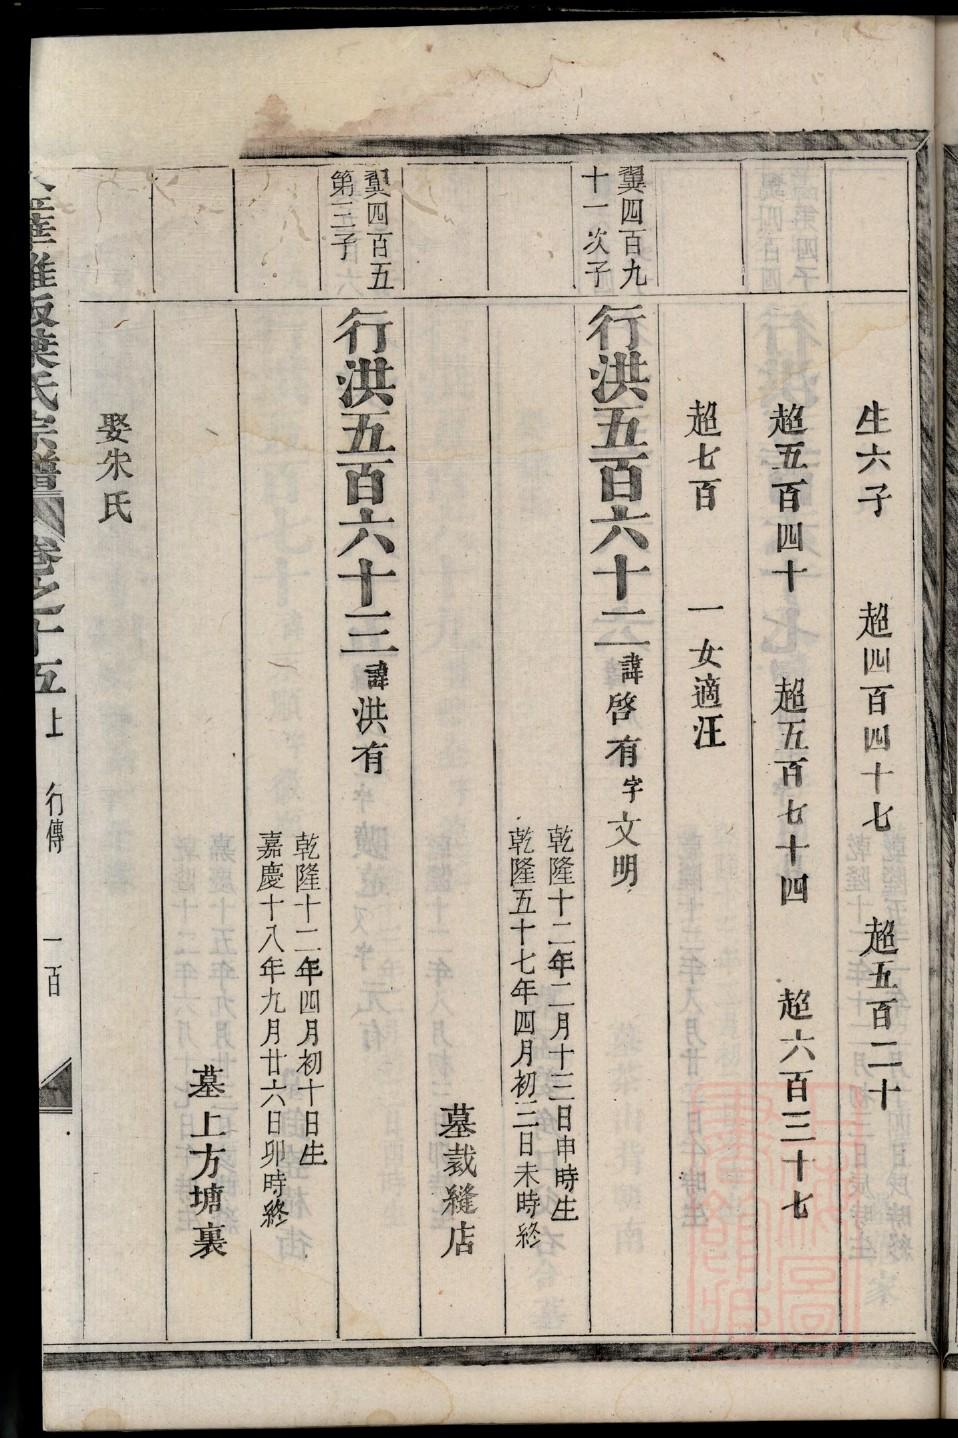 生六子 超四百四十七 超五百二十
超五百四十 超五百七十四 超六百三十七
超七百 一女適汪
翼四百九
十一次子
行洪五百六十二 諱啓有 字文明
乾隆十二年二月十三日申時生
乾隆五十七年四月初三日未時終
墓裁縫店
翼四百五
第三子
行洪五百六十三 諱洪有
乾隆十二年四月初十日生
嘉慶十八年九月廿六日卯時終
墓上方塘裏
娶朱氏
華雅畈葉氏宗譜 卷之十五上 行傳 一百